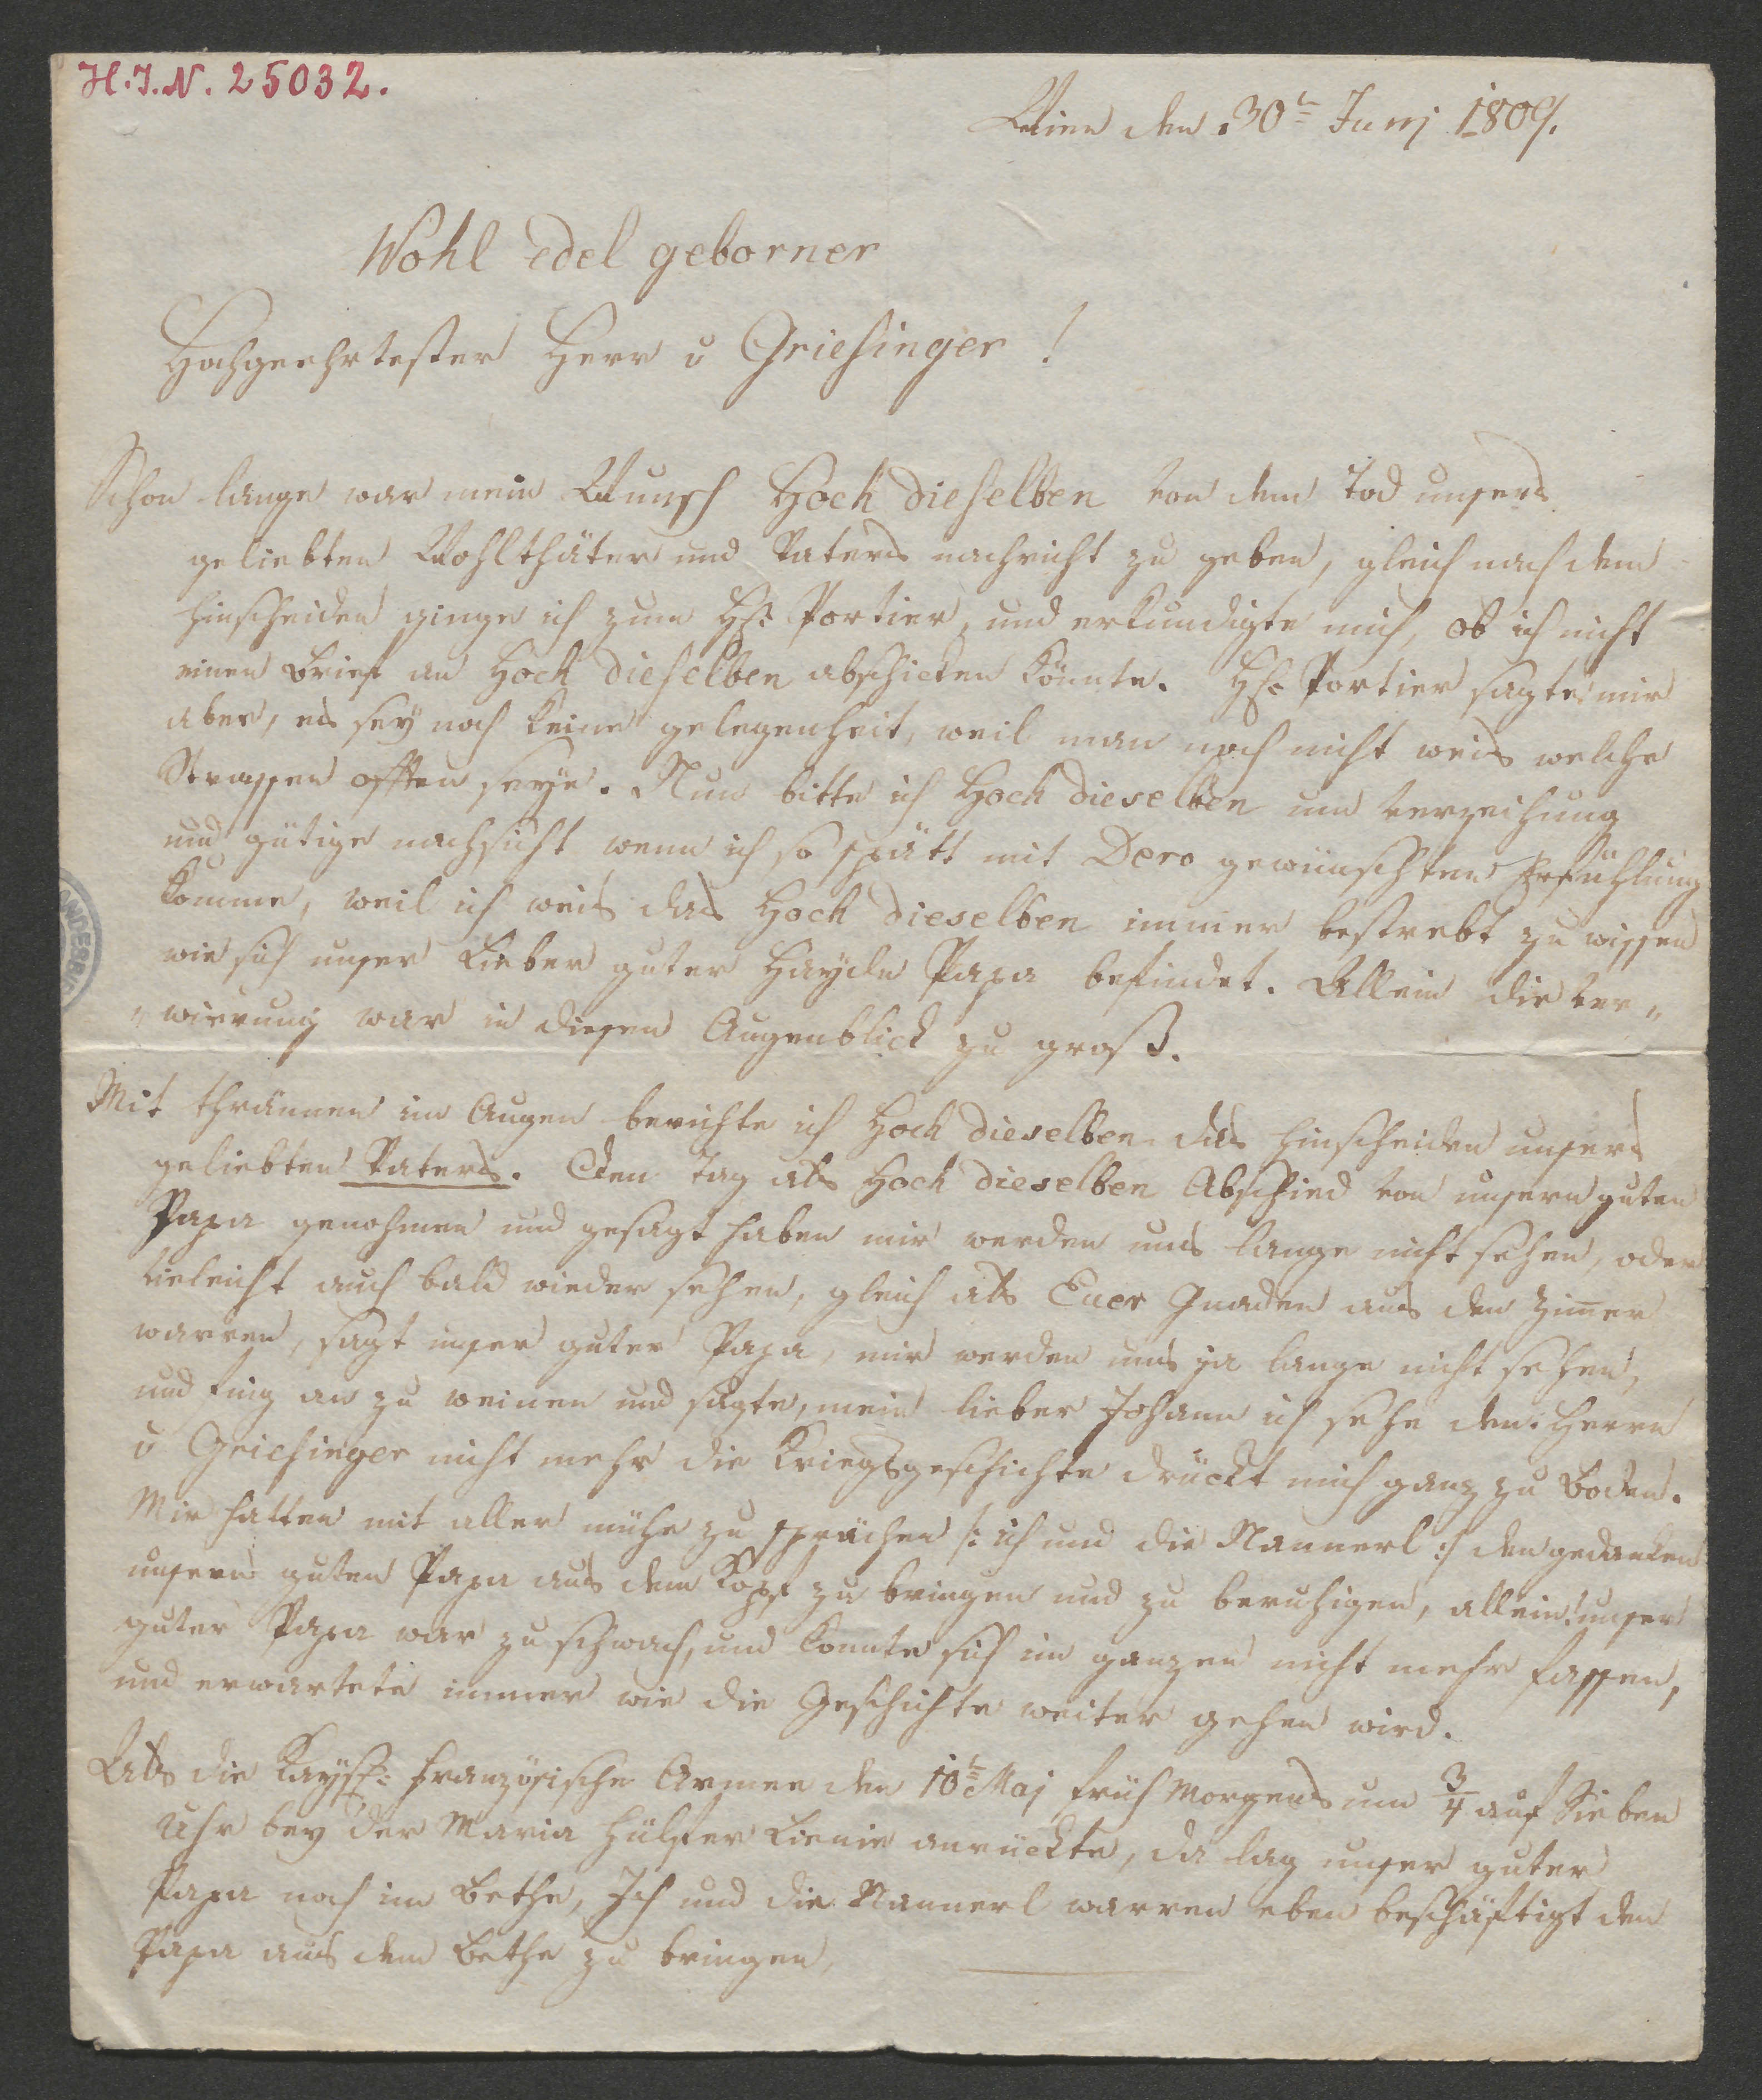 H.I.N. 25032.
Wien den 30t Junj 1809.
Wohl edel geborner
Hochgeehrtester Herr v Griesinger!
Schon lange war mein Wunsch Hoch dieselben von dem Tod unsers
geliebten Wohlthäter und Vaters nachricht zu geben, gleich nach dem
hinscheiden ginge ich zum H: Portier, und erkundigte mich, ob ich nicht
einen Brief an Hoch dieselben abschicken könnte. H: Portier sagte mir
aber, es seÿ noch keine gelegenheit, weil man noch nicht weis welche
Strassen offen seÿe. Nun bitte ich Hoch dieselben um verzeihung
und gütige nachsicht wenn ich so spätt mit Dero gewünschten
komme, weil ich weis das Hoch dieselben immer bestrebt zu wissen
wie sich unser Lieber guter Haÿdn Papa befindet. Allein die ver„
„wirrung war in diesen Augenblick zu groß.
Mit thrännen im Augen berichte ich Hoch dieselben das hinscheiden unsers
geliebten Vaters. Den tag als Hoch dieselben Abschied von unsern guten
Papa genohmen und gesagt haben mir werden uns lange nicht sehen, oder
vieleicht auch bald wieder sehen, gleich als Euer Gnaden aus den Zim̅er
warren, sagt unser guter Papa, mir werden uns ja lange nicht sehen,
und fing an zu weinen und sagte, mein lieber Johann ich sehe den Herrn
v Griesinger nicht mehr die Kriegsgeschichte drückt mich ganz zu Boden.
Mir hatten mit aller mühe zu sprächen /: ich und die Nannerl :/ den gedanken
unsern guten Papa aus dem Kopf zu bringen und zu beruhigen, allein! unser
guter Papa war zu schwach, und konnte sich im ganzen nicht mehr fassen,
und erwartete immer wie die Geschichte weiter gehen wird.
Als die Kaÿs: französische Armee den 10t Maj früh Morgends um 3/4 auf Sieben
Uhr bey der Maria hülfer Lienie anrückte, da lag unser guter
Papa noch im Bethe, Ich und die Nannerl warren eben beschäftigt den
Papa aus dem Bethe zu bringen,